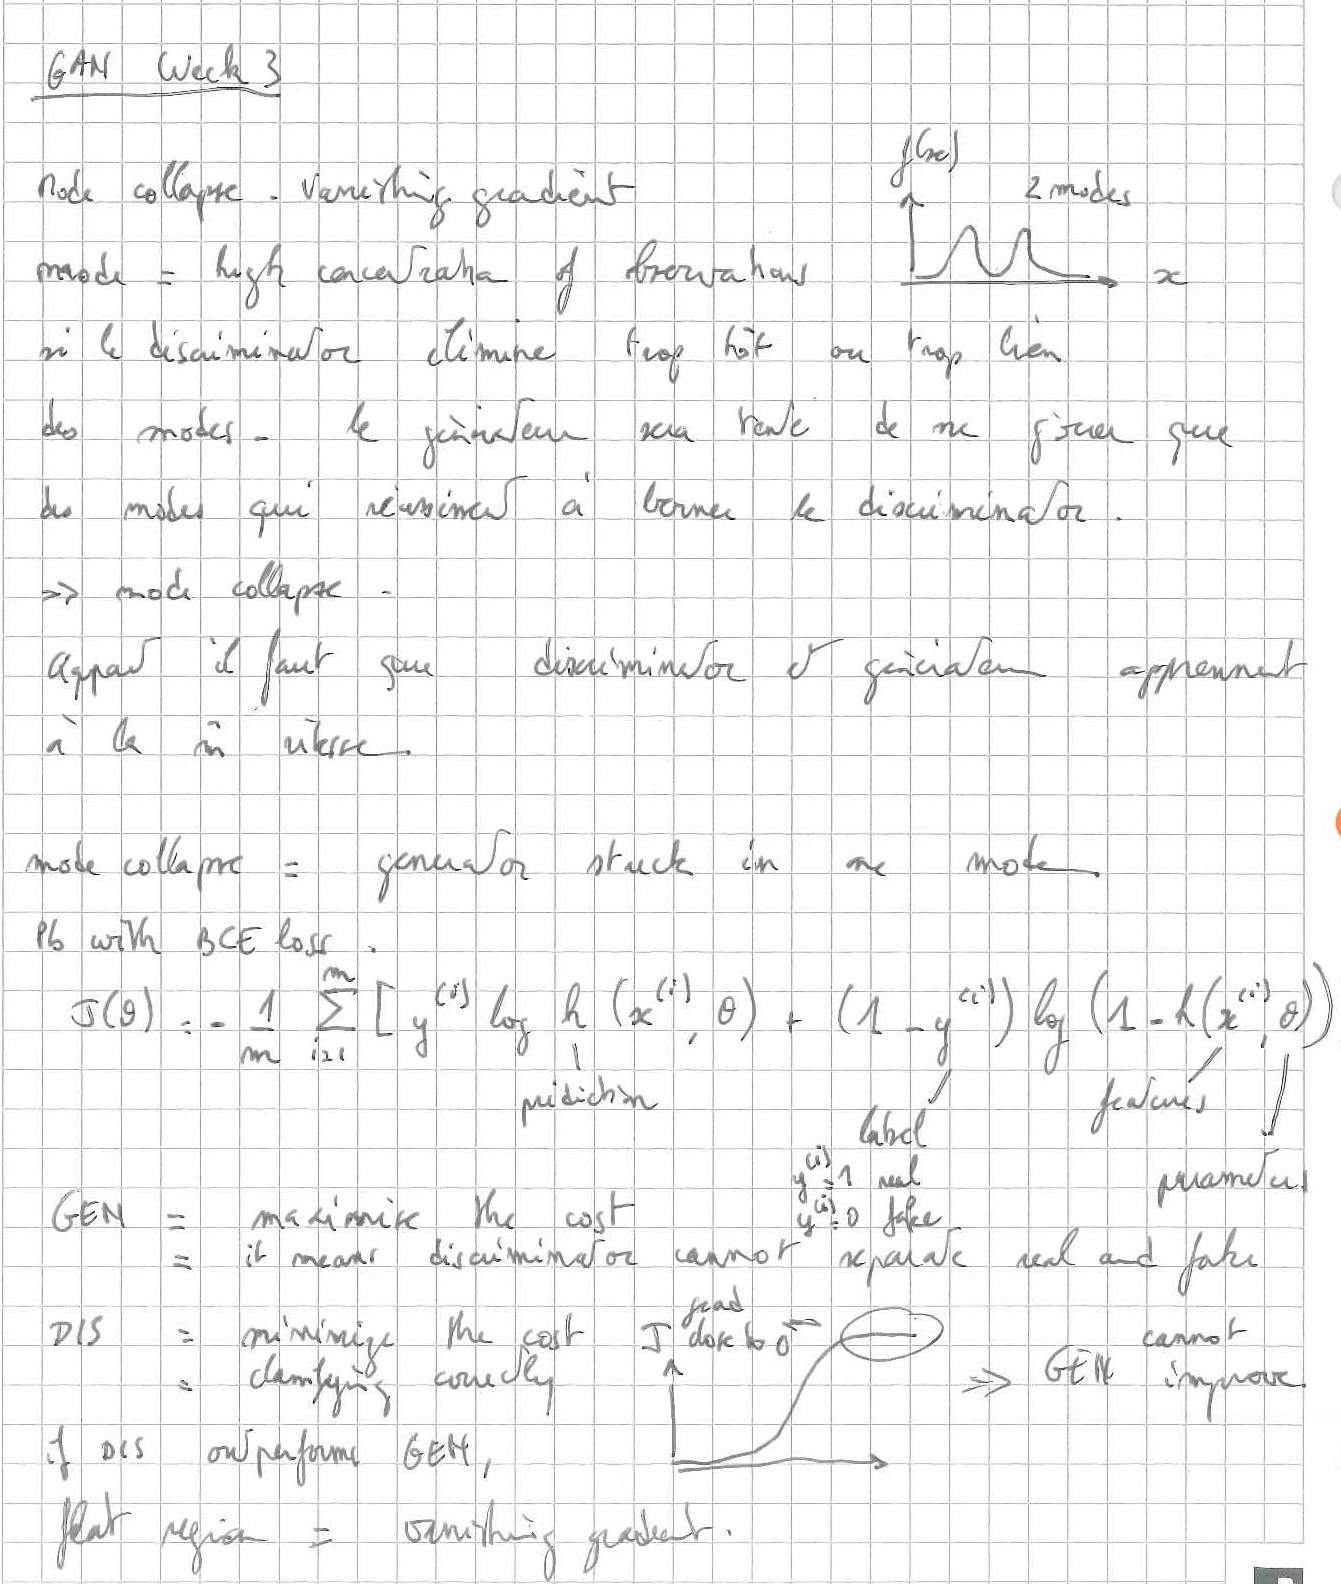 GAN Week 3
f(x)
2 modes
mode collapse - vanishing gradient
mode = high concentration of observations
x
si le discriminator élimine trop tôt ou trop bien
des modes - le générateur sera tenté de ne générer que
des modes qui réussissent à berner le discriminator.
=>> mode collapse -
il faut que discriminator et générateur apprennent
à la m̂ vitesse.
mode collapse = generator stuck in one mode.
Pb with BCE loss.
J(θ) = - 1/m Σ_{i=1}^{m} [ y^(i) log h (x^(i), θ) + (1 - y^(i)) log (1 - h(x^(i), θ))
prediction
features
label
parameters
y^(i)=1 real
y^(i)=0 fake
GEN = maximise the cost
= it means discriminator cannot separate real and fake
DIS = minimize the cost
= classifying correctly
J
grad
close to 0
=>> GEN cannot
improve.
if DIS outperforms GEN,
flat region = vanishing gradient.